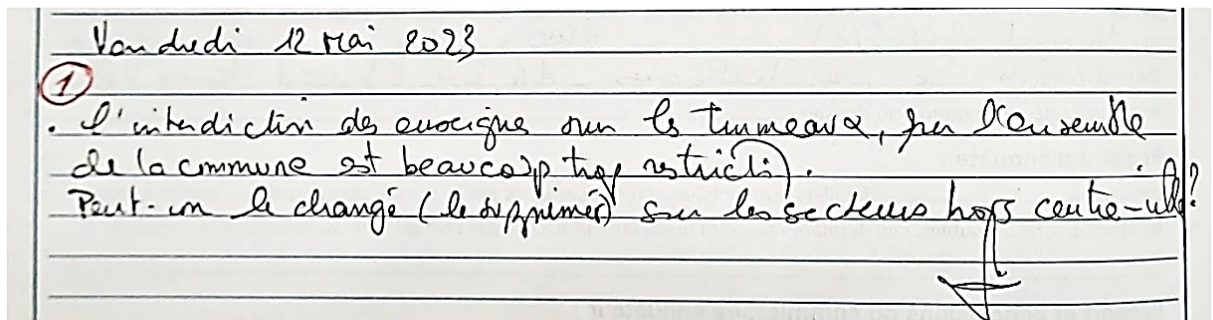 Vendredi 12 Mai 2023
①
. l'interdiction des enseignes sur les trumeaux, sur l'ensemble
de la commune est beaucoup trop restrictif.
Peut-on le changé (le supprimer) sur les secteurs hors centre-ville?